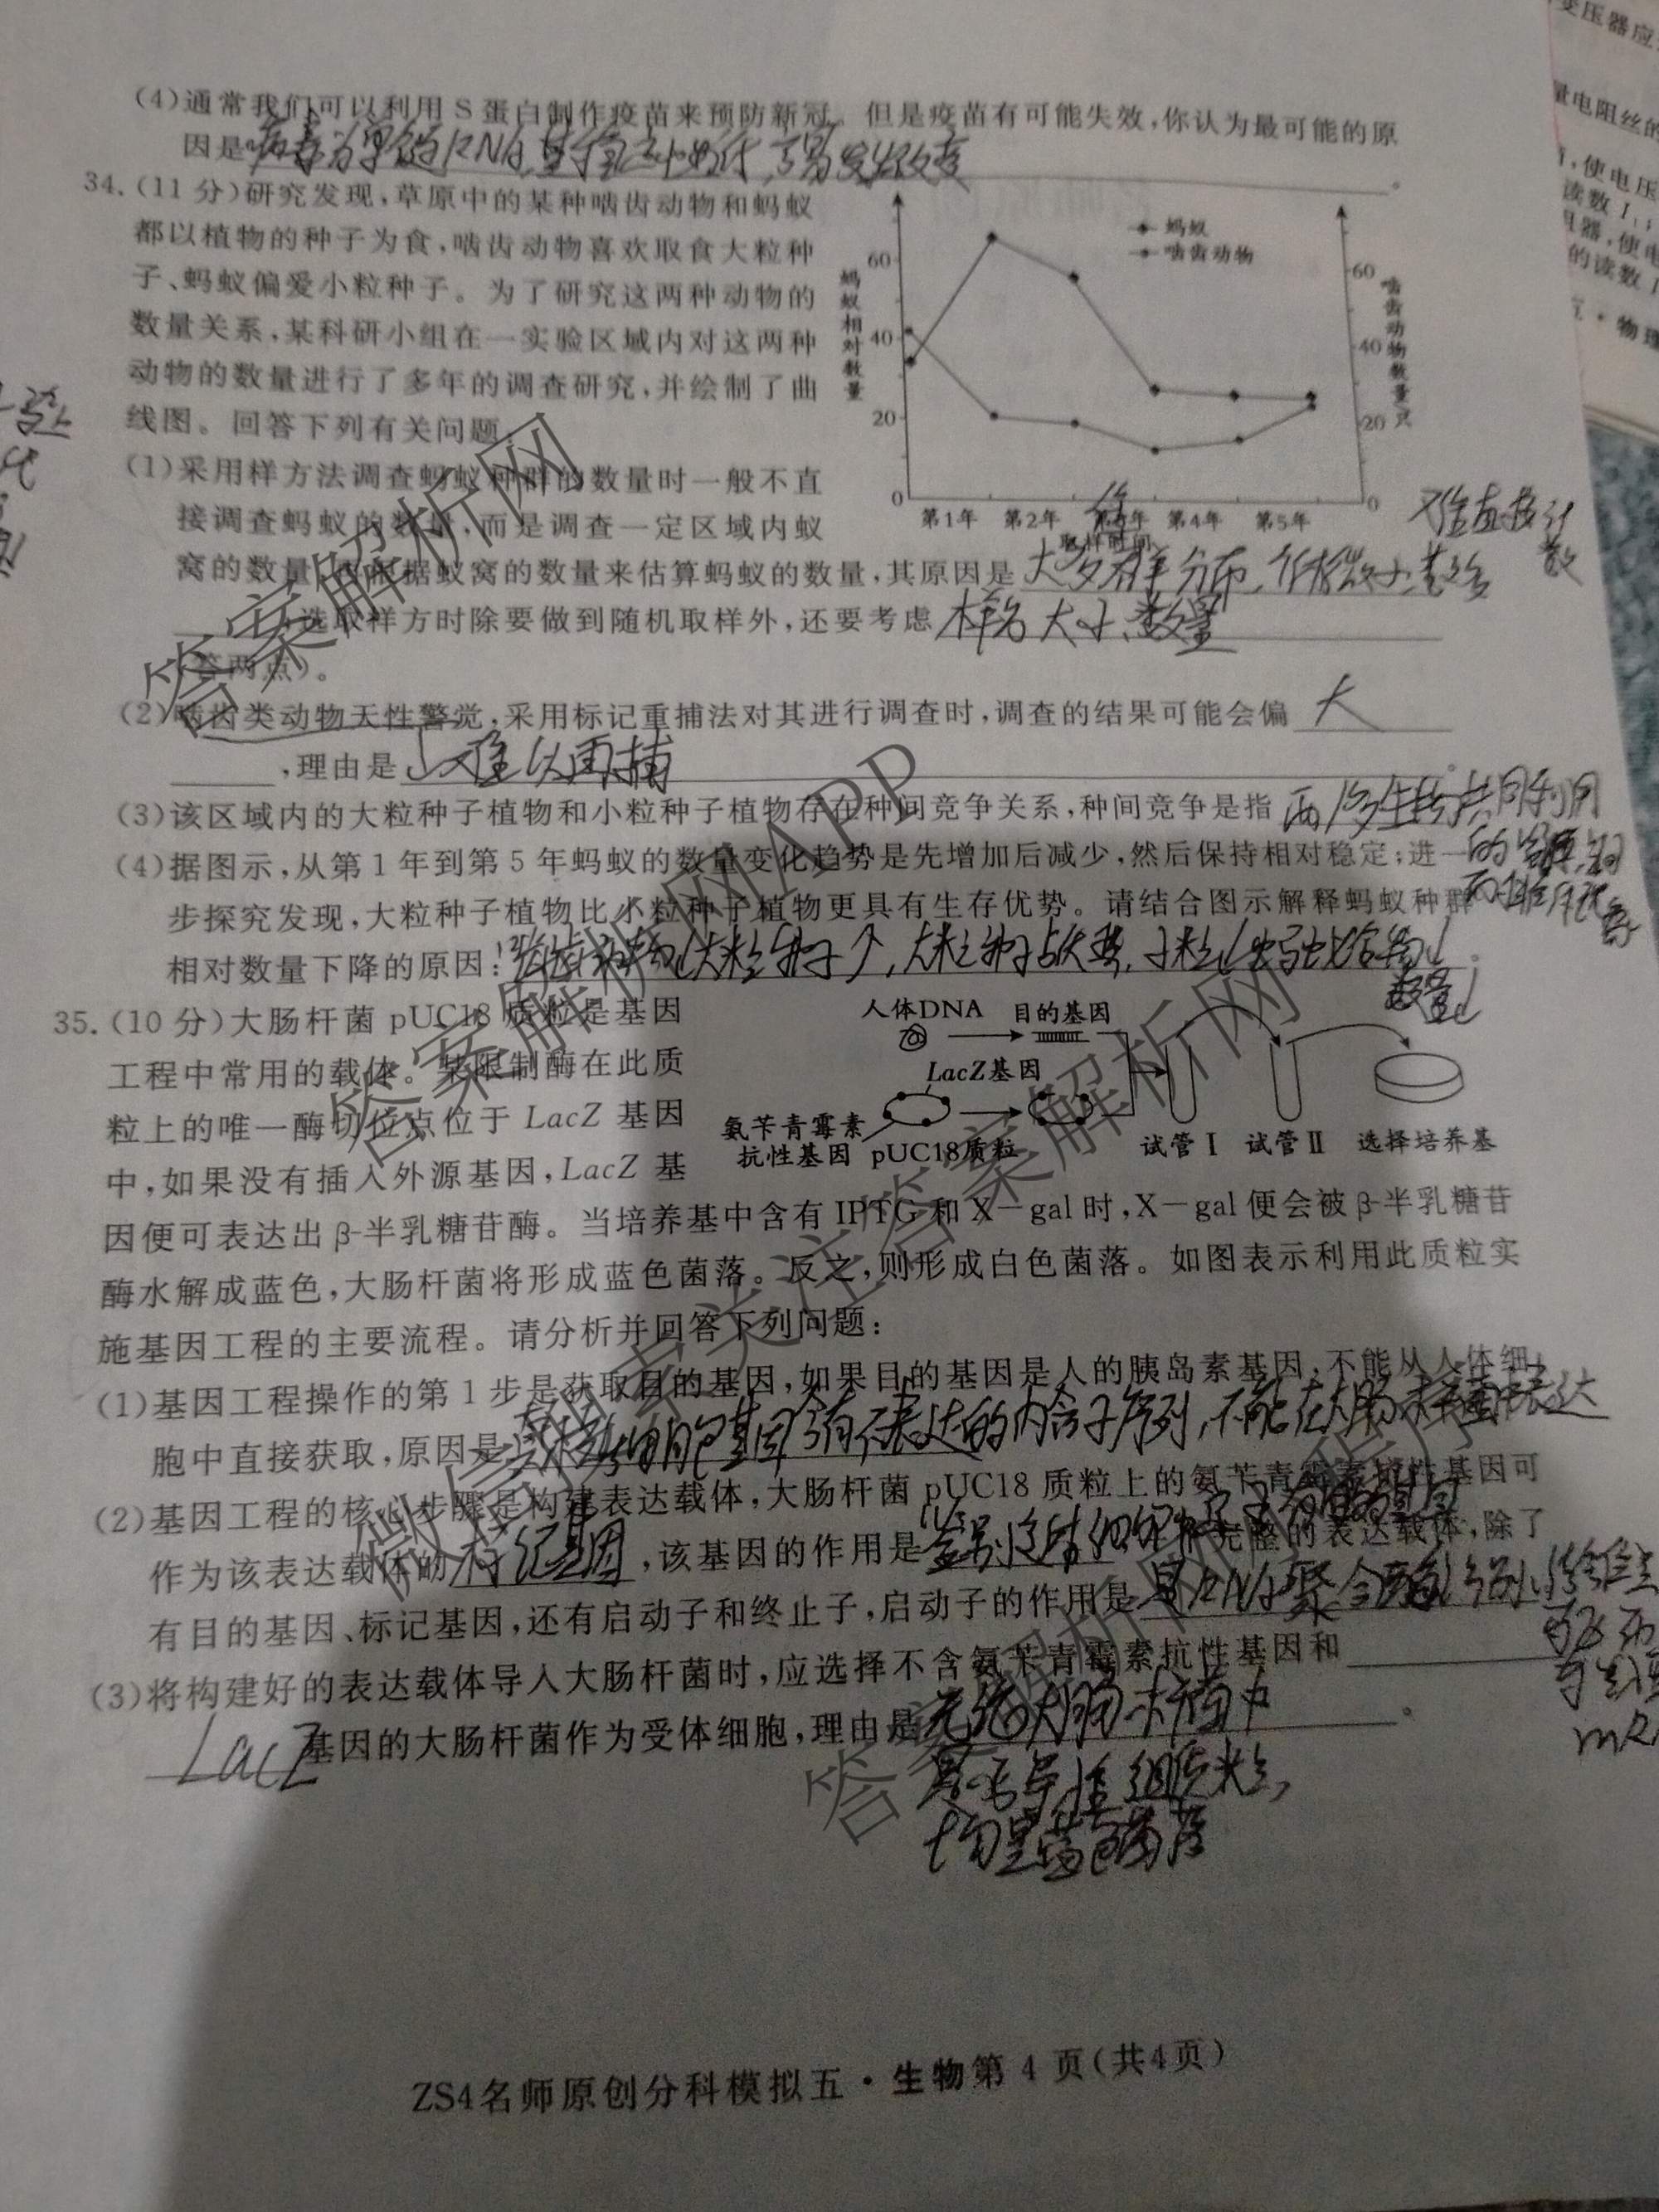 (4)通常我们可以利用S蛋白制作疫苗来预防新冠。但是疫苗有可能失效,你认为最可能的原
因是病毒为单链RNA,易发生突变。
34.(11分)研究发现,草原中的某种啮齿动物和蚂蚁
都以植物的种子为食,啮齿动物喜欢取食大粒种
子、蚂蚁偏爱小粒种子。为了研究这两种动物的
数量关系,某科研小组在一实验区域内对这两种
动物的数量进行了多年的调查研究,并绘制了曲
线图。回答下列有关问题
蚂蚁
啮齿动物
蚂蚁相对数量
60
40
20
0
啮齿动物数量/只
60
40
20
0
第1年 第2年 第3年 第4年 第5年
取样时间
(1)采用样方法调查蚂蚁种群的数量时一般不直
接调查蚂蚁的数量,而是调查一定区域内蚁
窝的数量,再根据蚁窝的数量来估算蚂蚁的数量,其原因是
难直接计
数
选取样方时除要做到随机取样外,还要考虑样方大小、数量
(答两点)。
(2)啮齿类动物天性警觉,采用标记重捕法对其进行调查时,调查的结果可能会偏大
,理由是难以再捕。
(3)该区域内的大粒种子植物和小粒种子植物存在种间竞争关系,种间竞争是指两种生物共同利用
(4)据图示,从第1年到第5年蚂蚁的数量变化趋势是先增加后减少,然后保持相对稳定;进一
步探究发现,大粒种子植物比小粒种子植物更具有生存优势。请结合图示解释蚂蚁种群
相对数量下降的原因:
数量↓
35.(10分)大肠杆菌pUC18质粒是基因
工程中常用的载体。某限制酶在此质
粒上的唯一酶切位点位于LacZ基因
中,如果没有插入外源基因,LacZ基
人体DNA 目的基因
LacZ基因
氨苄青霉素
抗性基因 pUC18质粒
试管Ⅰ 试管Ⅱ 选择培养基
因便可表达出β-半乳糖苷酶。当培养基中含有IPTG和X－gal时,X－gal便会被β-半乳糖苷
酶水解成蓝色,大肠杆菌将形成蓝色菌落。反之,则形成白色菌落。如图表示利用此质粒实
施基因工程的主要流程。请分析并回答下列问题:
(1)基因工程操作的第1步是获取目的基因,如果目的基因是人的胰岛素基因,不能从人体细
胞中直接获取,原因是真核细胞基因含有不表达的内含子序列,不能在大肠杆菌中表达
(2)基因工程的核心步骤是构建表达载体,大肠杆菌pUC18质粒上的氨苄青霉素抗性基因可
作为该表达载体的标记基因,该基因的作用是 完整的表达载体,除了
有目的基因、标记基因,还有启动子和终止子,启动子的作用是是RNA聚合酶识别、结合位点
(3)将构建好的表达载体导入大肠杆菌时,应选择不含氨苄青霉素抗性基因和
LacZ基因的大肠杆菌作为受体细胞,理由是无论大肠杆菌中
是否导入重组质粒,
均呈蓝色菌落。
答案解析网
答案解析网APP
微信搜索关注答案解析网
答案解析网程序
ZS4名师原创分科模拟五·生物第4页(共4页)
变压器应
量电阻丝的
,使电压
读数I₁;
阻器,使电
的读数I
·物理